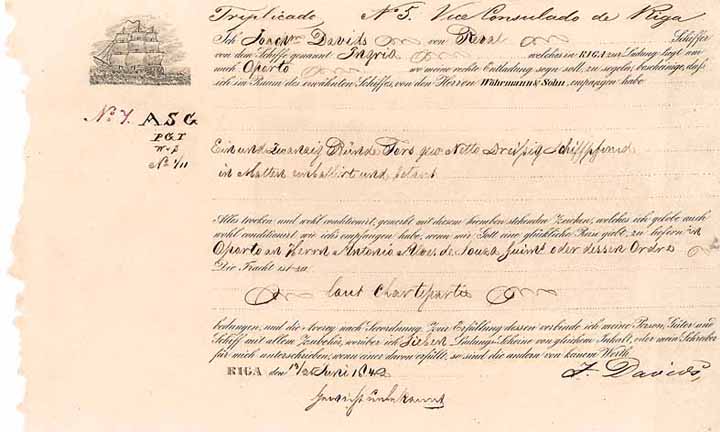 Triplicado No 5. Vice Consulado de Riga
Ich Joachm Davids von Schiffer
von dem Schiffe genannt Ingrid welches in RIGA zur Ladung liegt um
nach Oporto wo meine rechte Entladung seyn soll, zu segeln, bescheinige, daß
ich in Raum des erwähnten Schiffes, von den Herren Wöhrmann & Sohn, empfangen habe
No 7. ASG
PGT
No 1/11
Ein und Zwanzig Bünde Netto Dreißig Schiffpfund
in Matten emballirt und
Alles trocken und wohl conditionirt, gemerkt mit diesem hieneben stehenden Zeichen, welches ich gelobe auch
wohl conditionirt, wie ichs empfangen habe, wenn mir Gott eine glückliche Reise giebt, zu liefern in
Oporto an Herrn Antonio Alves de Souza Guimes oder dessen Ordre
Die Fracht ist zu
laut Chartepartie
bedungen, und die Averey nach Seeordnung. Zur Erfüllung dessen verbinde ich meine Person, Güter und
Schiff mit allem Zubehör, worüber ich Sieben Ladungs-Scheine von gleichem Inhalt, oder mein Schreiber
für mich unterschrieben; wenn einer davon erfüllt, so sind die andern von keinem Werth.
RIGA den Juni 1842 J. Davids,
Gewicht unbekannt